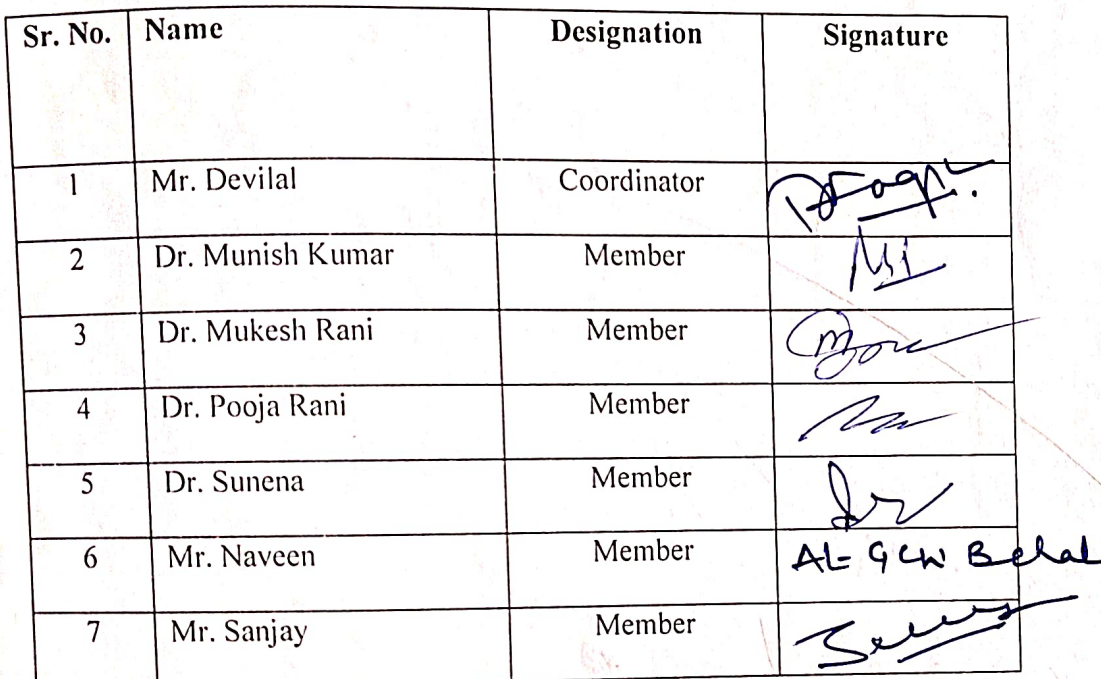 Sr. No. Name Designation Signature
1 Mr. Devilal Coordinator
2 Dr. Munish Kumar Member
3 Dr. Mukesh Rani Member
4 Dr. Pooja Rani Member
5 Dr. Sunena Member
6 Mr. Naveen Member At GCW Behal
7 Mr. Sanjay Member